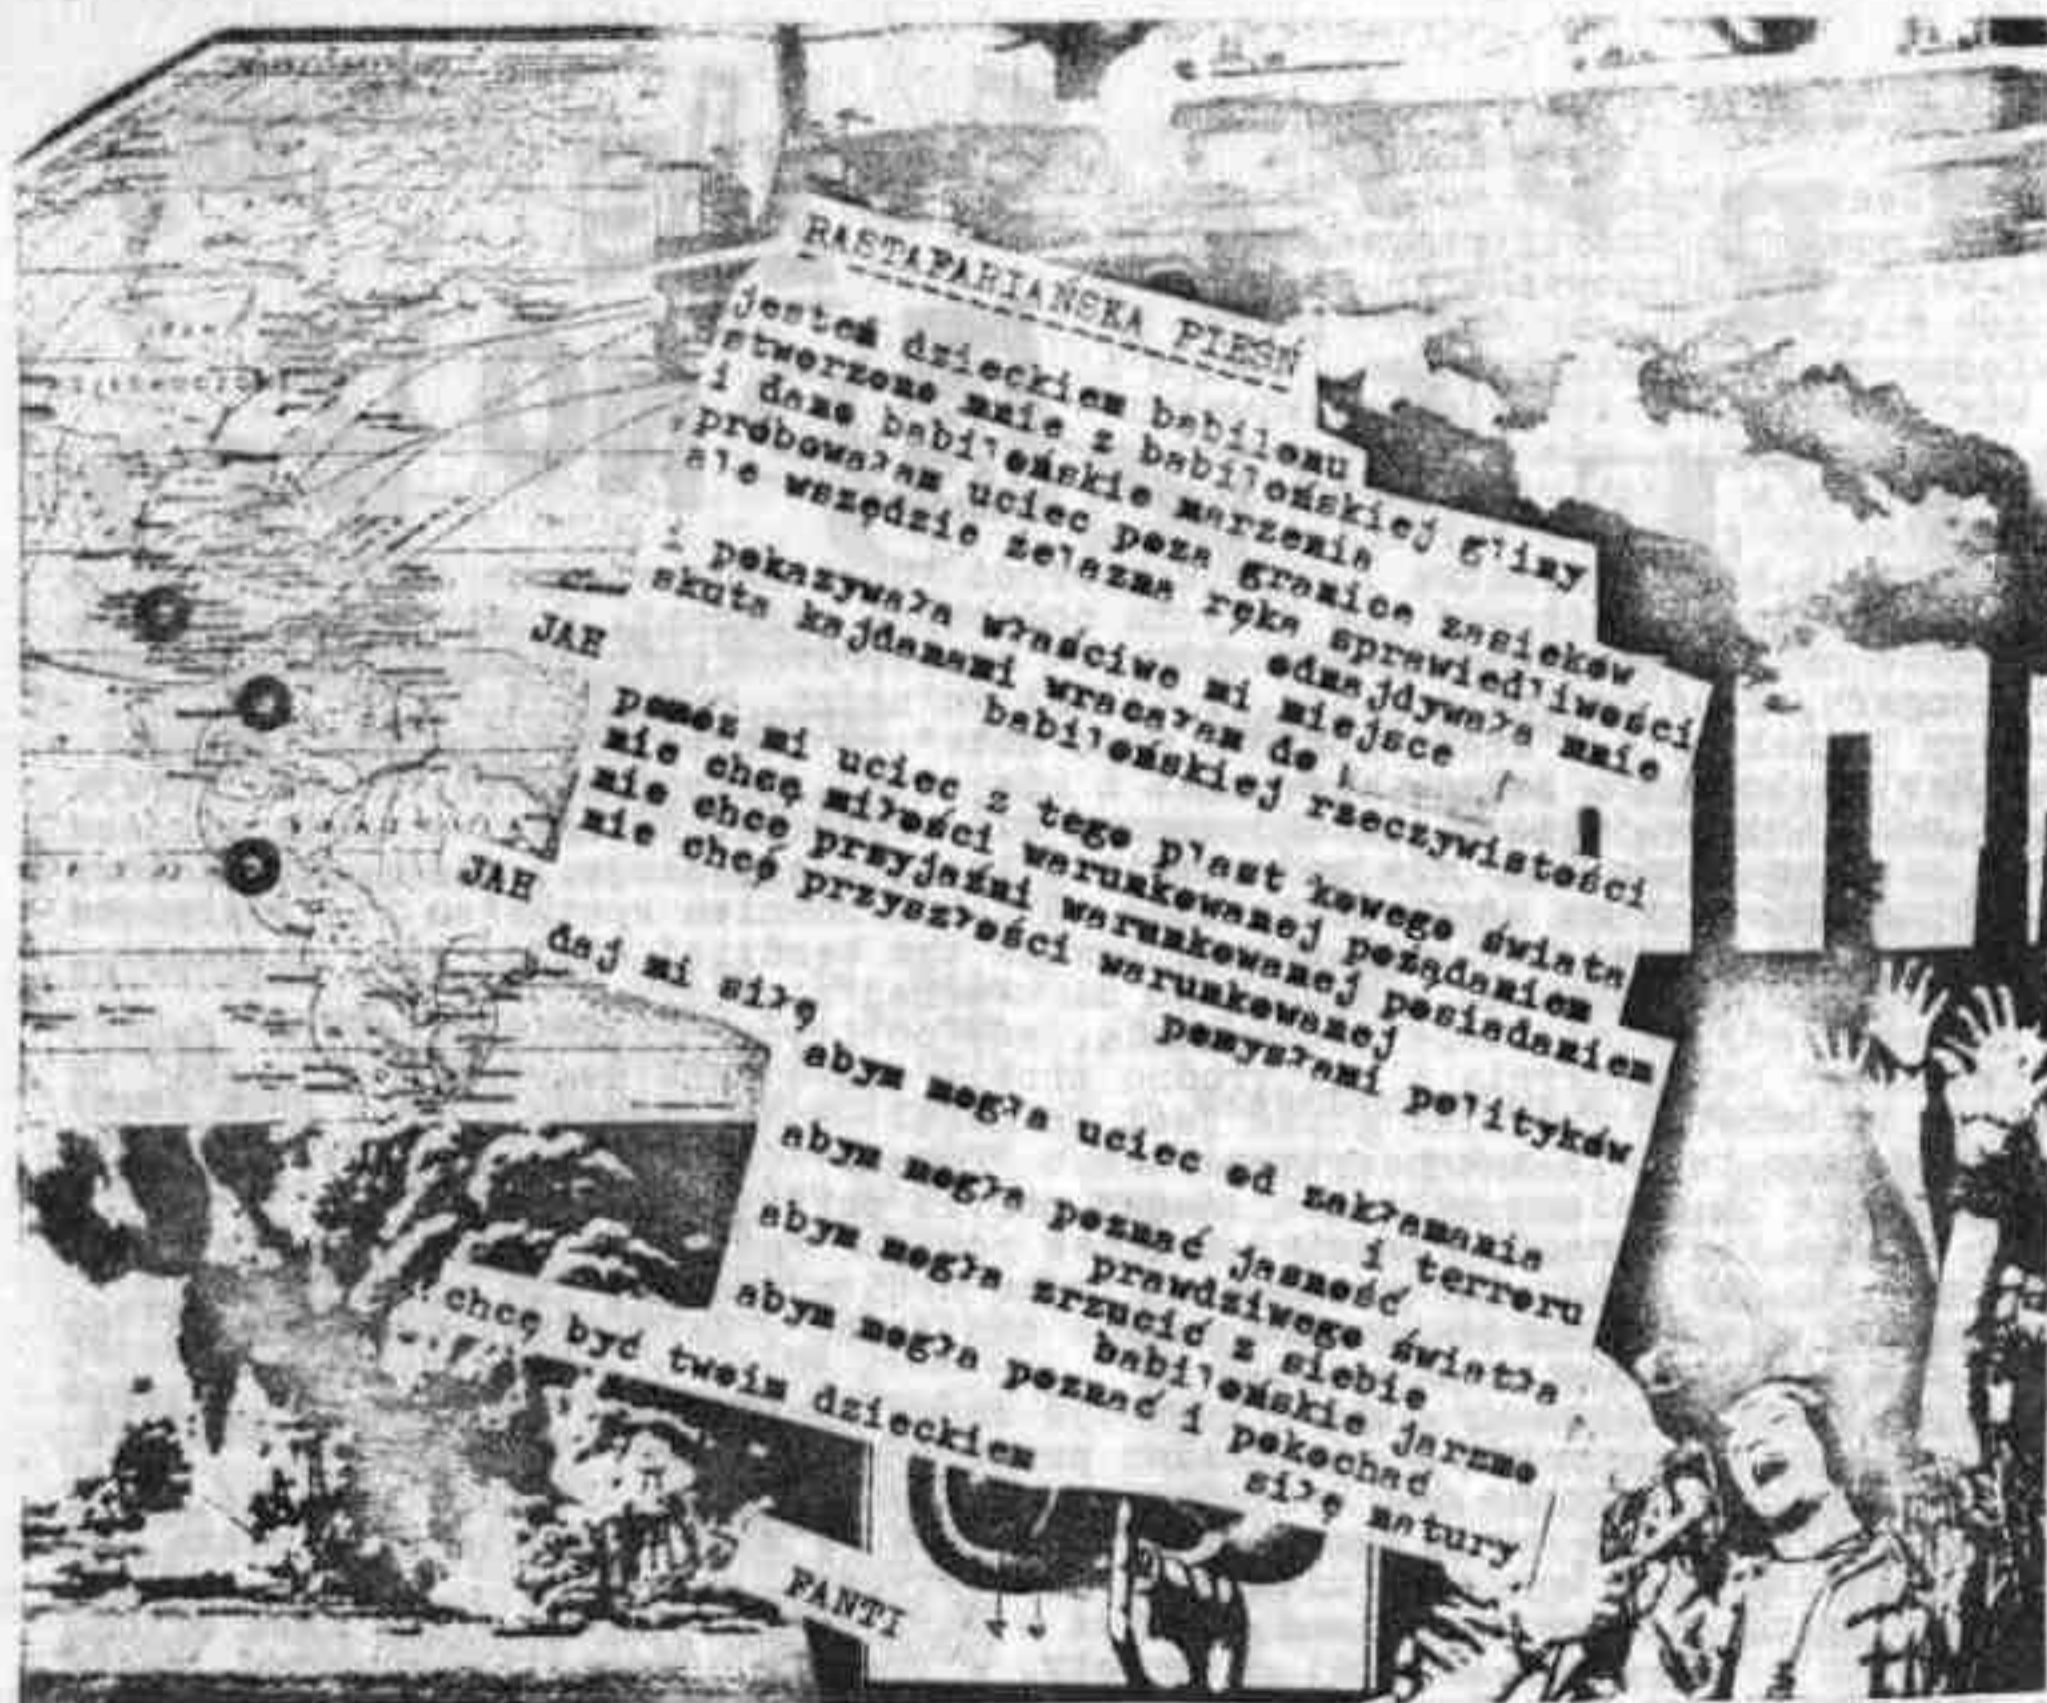 RASTAFARIAŃSKA PIEŚŃ
jestem dzieckiem babilonu
stworzono mnie z babilońskiej gliny
i dano babilońskie marzenia
próbowałam uciec poza granice zasieków
ale wszędzie żelazna ręka sprawiedliwości
odnajdywała mnie
i pokazywała właściwe mi miejsce
skuta kajdanami wracałam do
babilońskiej rzeczywistości
JAH
pomóż mi uciec z tego plast kowego świata
nie chcę miłości warunkowanej pożądaniem
nie chcę przyjaźni warunkowanej posiadaniem
nie chcę przyszłości warunkowanej
pomysłami polityków
JAH
daj mi siłę
abym mogła uciec od zakłamania
i terroru
abym mogła poznać jasność
prawdziwego światła
abym mogła zrzucić z siebie
babilońskie jarzmo
abym mogła poznać i pokochać
siłę natury
chcę być twoim dzieckiem
FANTI